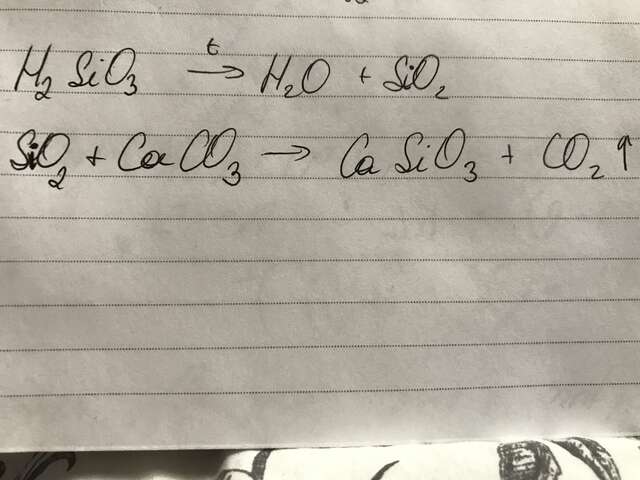 t
H₂SiO₃ → H₂O + SiO₂
SiO₂ + CaCO₃ → CaSiO₃ + CO₂↑